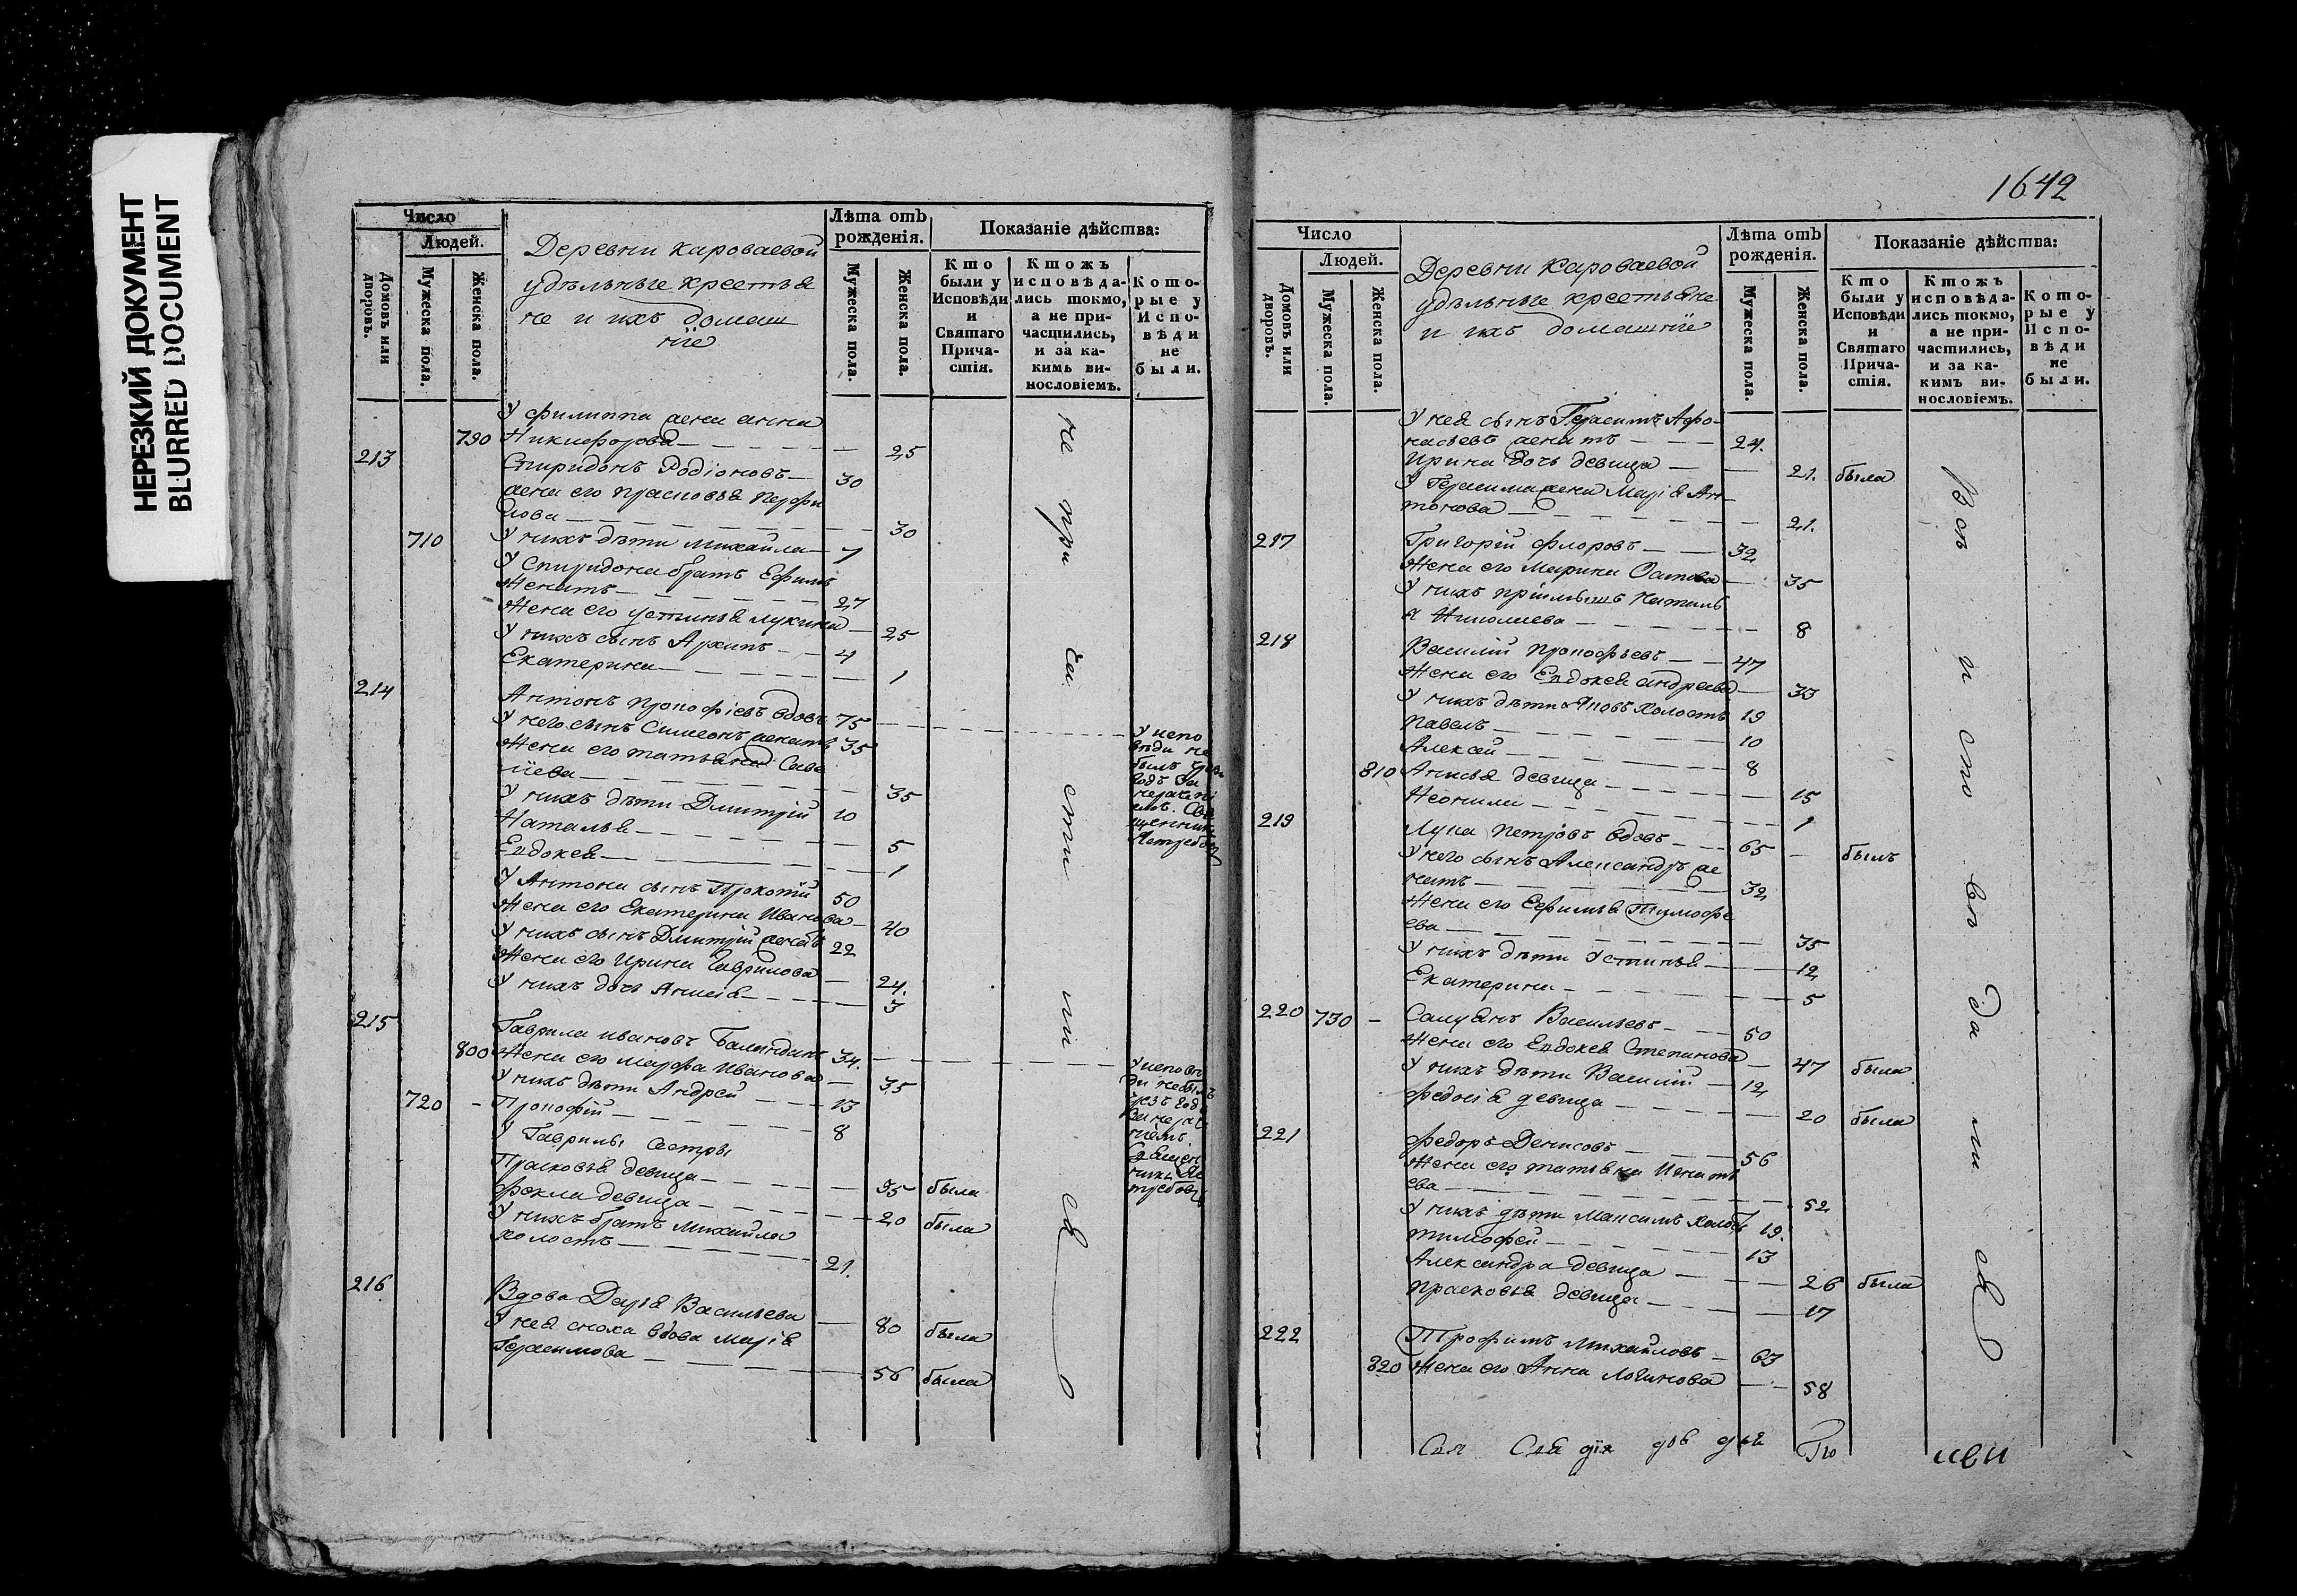 НЕРЕЗКИЙ ДОКУМЕНТ
BLURRED DOCUMENT
Число
Людей.
Домовъ или дворовъ.
Мужеска пола.
Женска пола.
Деревни Кароваевой
удѣльные крестья
не и ихъ домаш
ніе
Лѣта отъ рожденія.
Мужеска пола.
Женска пола.
Показаніе дѣйства:
Кто были у Исповѣди и Святаго Причастія.
Ктожъ исповѣдались токмо, а не причастились, и за какимъ винословіемъ.
Которые у Исповѣди не были.
У Филиппа жена Анна
790 Никифорова 25
213 Спиридонъ Родіоновъ 30
жена его Прасковья Перфи
лова 30
710 У нихъ дѣти Михайла 7
У Спиридона братъ Ефимъ
женатъ 27
Жена его Устинья Лукина 25
У нихъ сынъ Архипъ 4
Екатерина 1
214 Антонъ Прокофіевъ вдовъ 75
У него сынъ Симеонъ женатъ 35
Жена его Татьяна Саве
ліева 35
У нихъ дѣти Дмитрій 10
Наталья 5
Евдокея 1
У Антона сынъ Прокопій 50
Жена его Екатерина Иванова 40
У нихъ сынъ Дмитрій женатъ 22
Жена его Ирина Гаврилова 24.
У нихъ дочь Анисія 3
215 Гаврила Ивановъ 34.
800 Жена его Марфа Иванова 35
У нихъ дѣти Андрей 13
720 Прокофій 8
У Гаврилы сестры
Прасковья девица 35 была
Фекла девица 20 была
У нихъ братъ Михайла
холостъ 21.
216 Вдова Дарья Васильева 80 была
У нея сноха вдова Марія
Герасимова 56 была
не при ча сти ли ся
1642
Число
Людей.
Домовъ или дворовъ.
Мужеска пола.
Женска пола.
Деревни Кароваевой
удѣльные крестьяне
и ихъ домашніе
Лѣта отъ рожденія.
Мужеска пола.
Женска пола.
Показаніе дѣйства:
Кто были у Исповѣди и Святаго Причастія.
Ктожъ исповѣдались токмо, а не причастились, и за какимъ винословіемъ.
Которые у Исповѣди не были.
У нея сынъ Герасимъ Афо-
насьевъ женатъ 24.
Ирина дочь девица 21. была
У Герасима жена Марія Ан
тонова 21.
217 Григорій Флоровъ 32
Жена его Марина 35
У нихъ пріимышъ Наталь
я 8
218 Василій Прокофьевъ 47
Жена его Евдокея Андреева 33
У нихъ дѣти Яковъ холостъ 19
Павелъ 10
Алексей 8
810 Анисья девица 15
Неонила 1
219 Лука Петровъ вдовъ 65 былъ
У него сынъ Александръ же
натъ 32
Жена его Ефимья Тимофе
ева 35
У нихъ дѣти Устинья 12
Екатерина 5
220 730 Васильевъ 50
Жена его Евдокея Степанова 47 была
У нихъ дѣти Василій 12
Федосія девица 20 была
221 Федоръ Денисовъ 56
Жена его Татьяна Игнать
ева 52
У нихъ дѣти Максимъ холостъ 19.
Тимофей 13
Александра девица 26 была
Прасковья девица 17
222 Трофимъ Михайловъ 63
820 Жена его Анна Логинова 58
Всѣ и спо вѣ да ли ся